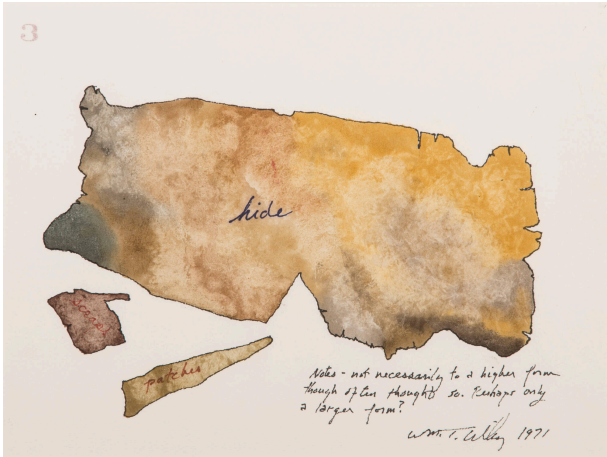 3
hide
patches
Notes - not necessarily to a higher form
though often thought so. Perhaps only
a larger form?
Wm. T. Wiley 1971